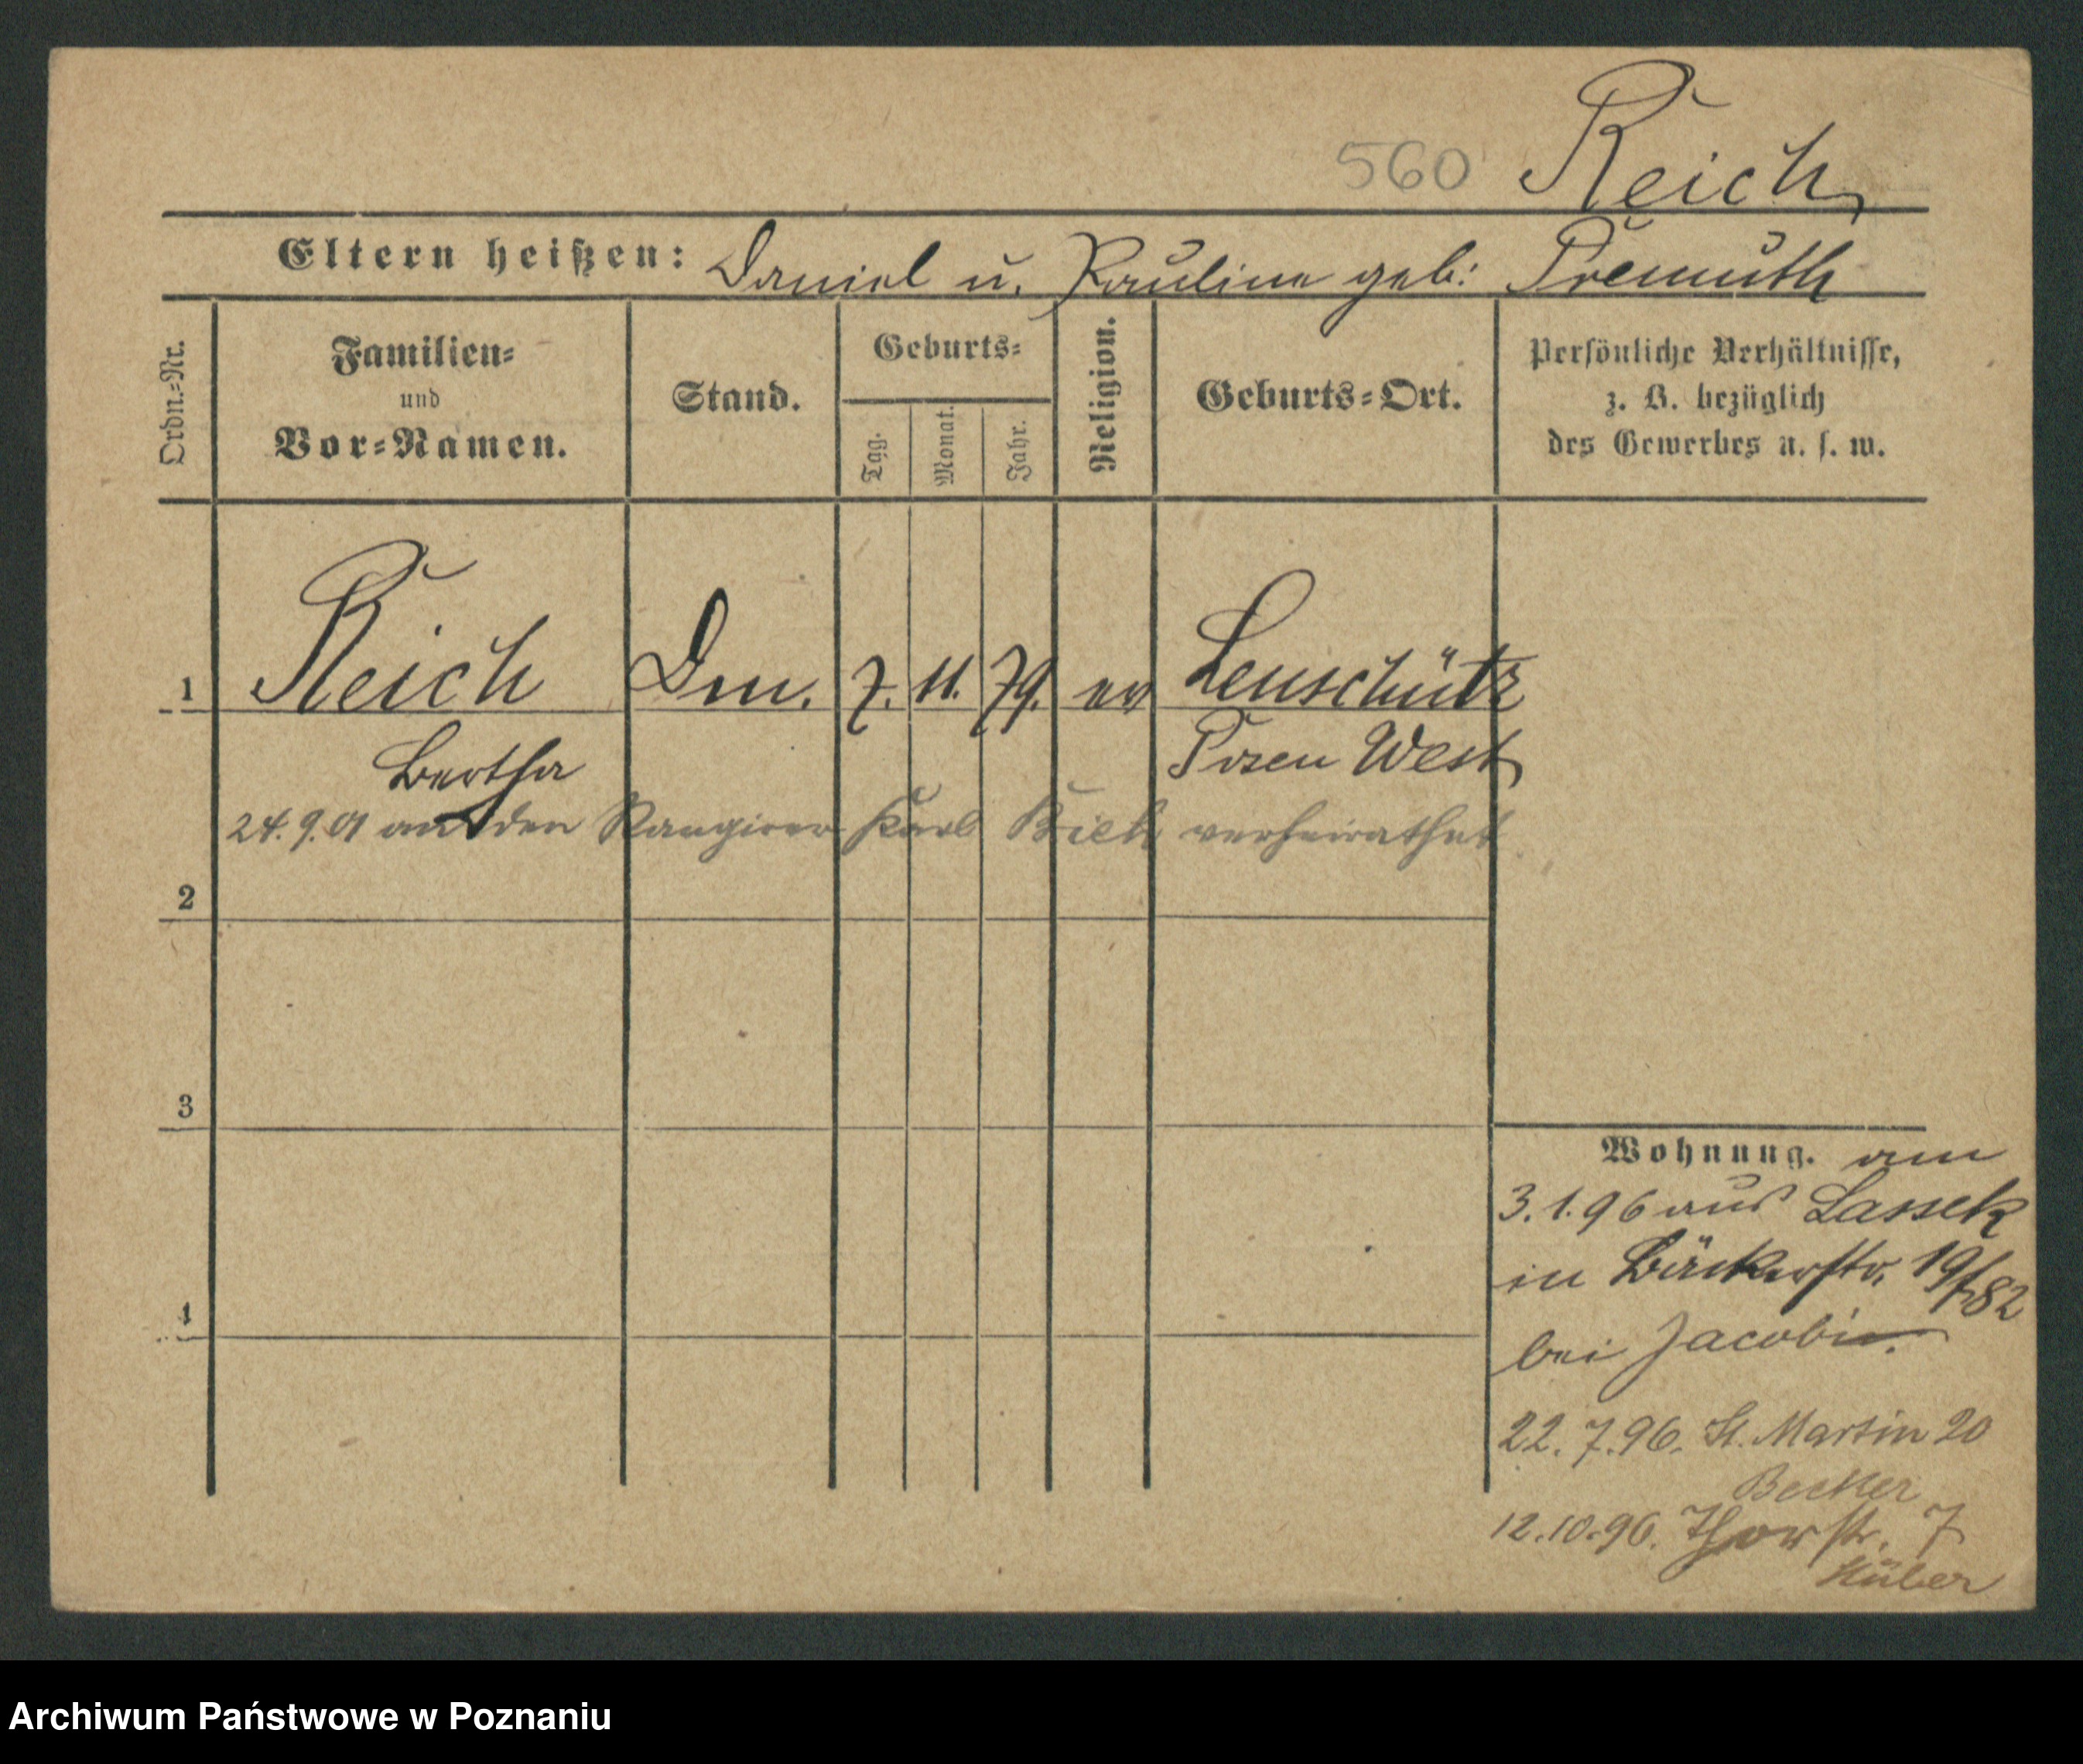 560 Reich
Eltern heißen: Daniel u. Pauline geb: Premuth
Ordn.=Nr.
Familien=
und
Vor=Namen.
Stand.
Geburts=
Tag.
Monat.
Jahr.
Religion.
Geburts=Ort.
Persönliche Verhältnisse,
z. B. bezüglich
des Gewerbes u. s. w.
1 Reich Dm. 7. 11. 79. ev Lenschütz
Bertha Posen West
24.9.01 an den Rangirer Karl verheirathet
2
3
4
Wohnung. am
3.1.96 aus Lassek
in Bäckerstr. 19/182
bei Jacobi
22.7.96. St. Martin 20
Becker
12.10.96. Thorstr. 7